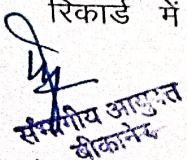 रिकार्ड में
संभागीय आयुक्त
बीकानेर